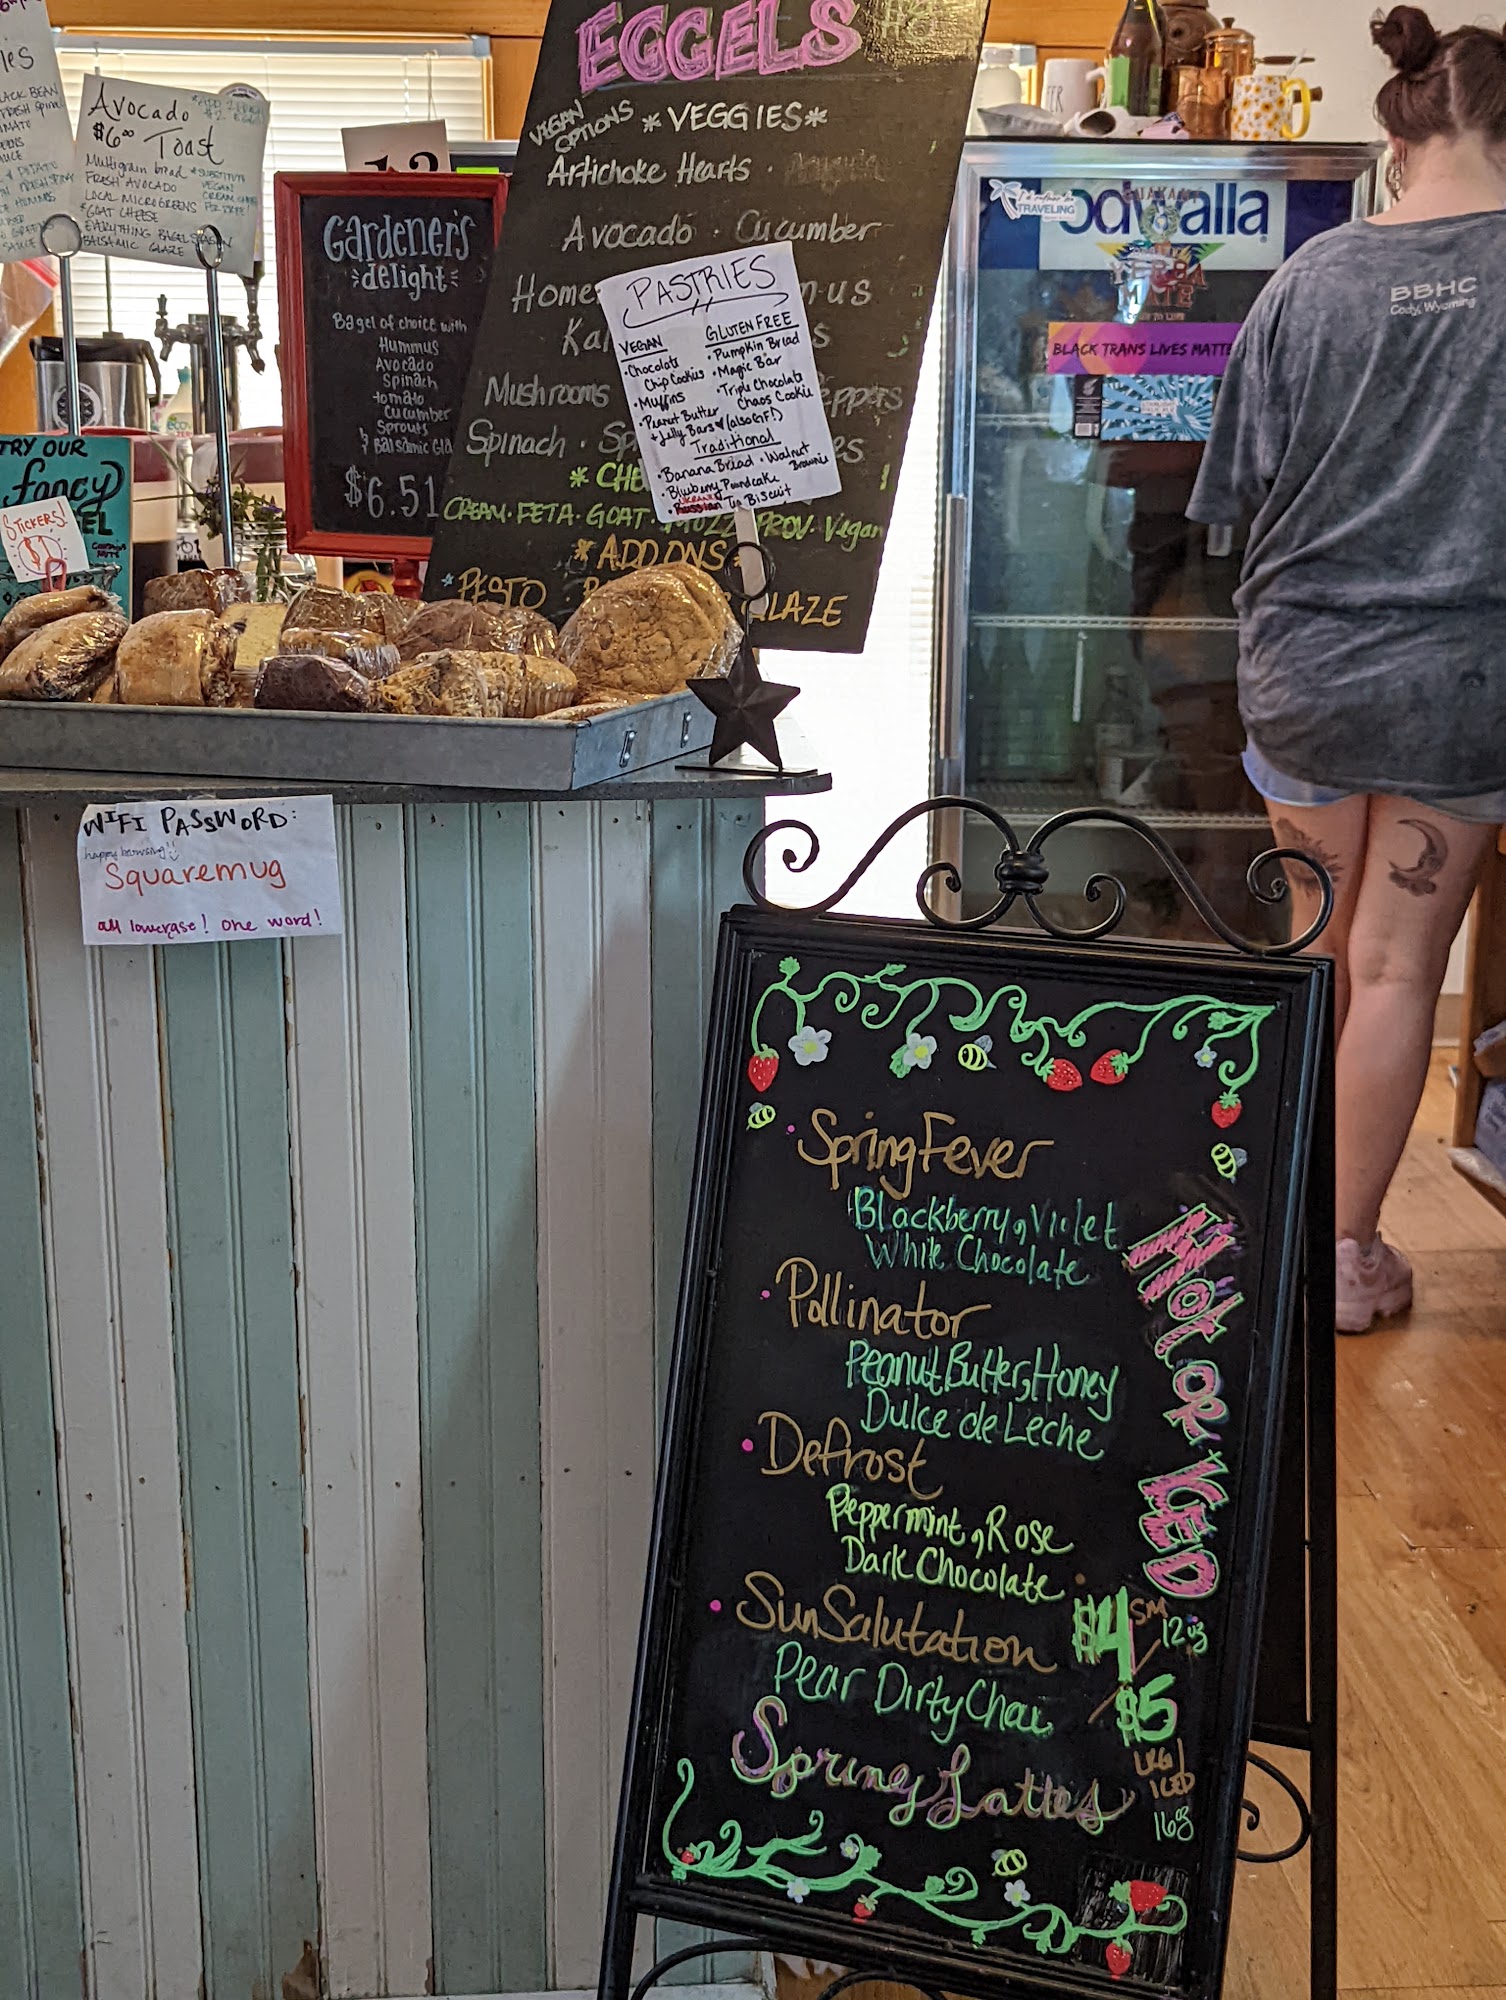 LACK BEAN
Avocado
$6.00 Toast
Multigrain bread
FRESH AVOCADO
LOCAL MICROGREENS
& GOAT CHEESE
EVERYTHING BAGEL SEASON
BALSAMIC GLAZE
SUBSTITUTE
VEGAN
CREAM
TRY OUR
fancy
STICKERS!
$1
Gardener's
delight
Bagel of choice with
Hummus
Avocado
Spinach
tomato
Cucumber
Sprouts
& Balsamic Gla
$6.51
EGGELS
VEGAN
OPTIONS
*VEGGIES*
Artichoke Hearts · Arugula
Avocado · Cucumber
Home mus
Ka s
Mushrooms eppers
Spinach · Sp es
*CHE
CREAM · FETA · GOAT · MOZZ PROV · Vegan
*ADD ONS*
*PESTO · B GLAZE
PASTRIES
VEGAN
• Chocolate
Chip Cookies
• Muffins
• Peanut Butter
+ Jelly Bars ♥ (also GF!)
GLUTEN FREE
• Pumpkin Bread
• Magic Bar
• Triple Chocolate
Chaos Cookie
Traditional
• Banana Bread • Walnut
Brownie
• Blueberry Poundcake
• Russian Tea Biscuit
I'd rather be
TRAVELING
odwalla
GUAYAKI
YERBA
MATE
BLACK TRANS LIVES MATTE
BBHC
Cody, Wyoming
WIFI PASSWORD:
happy browsing!
Squaremug
all lowercase! one word!
• Spring Fever
Blackberry, Violet
White Chocolate
• Pollinator
Peanut Butter, Honey
Dulce de Leche
• Defrost
Peppermint, Rose
Dark Chocolate
• Sun Salutation
Pear Dirty Chai
Spring Lattes
Hot OR ICED
$4 SM
12oz
$5
LRG/
ICED
16oz